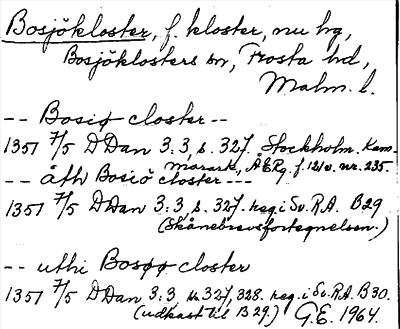 Bosjökloster, f. kloster, nu hg,
Bosjöklosters sn, Frosta hd,
Malm. l.
-- Bosiø closter --
1351 7/5 DDan 3:3, s. 327. Stockholm. Kam-
marark, ÄERg. f. 121 v. nr. 235.
-- ath Bosiö closter ---
1351 7/5 DDan 3:3, s. 327. reg. i Sv. R.A. B29
(Skånebrevsfortegnelsen.)
-- uthi Bosøø closter
1351 7/5 DDan 3:3, s. 327, 328. reg. i Sv. R.A. B30.
(udkast til B29.) G.E. 1964.